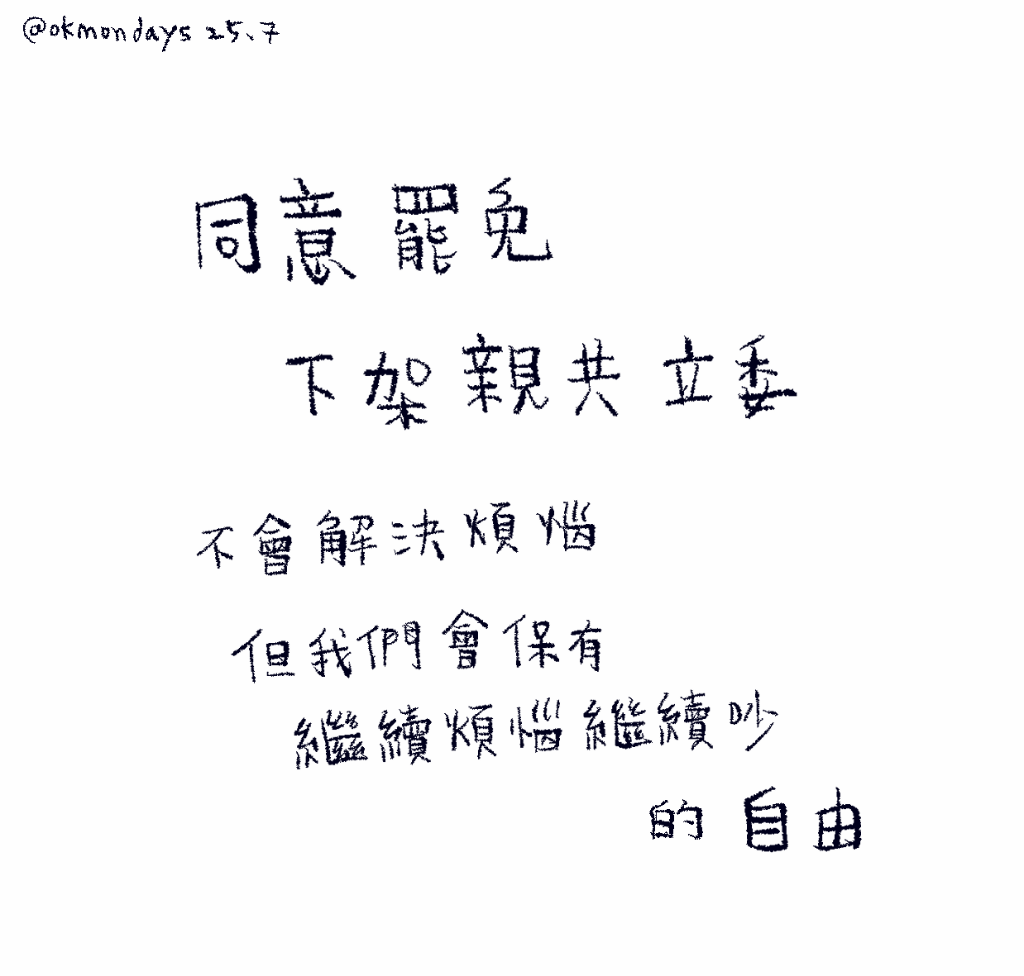 @okmondays 25.7
同意罷免
下架親共立委
不會解決煩惱
但我們會保有
繼續煩惱繼續吵
的自由